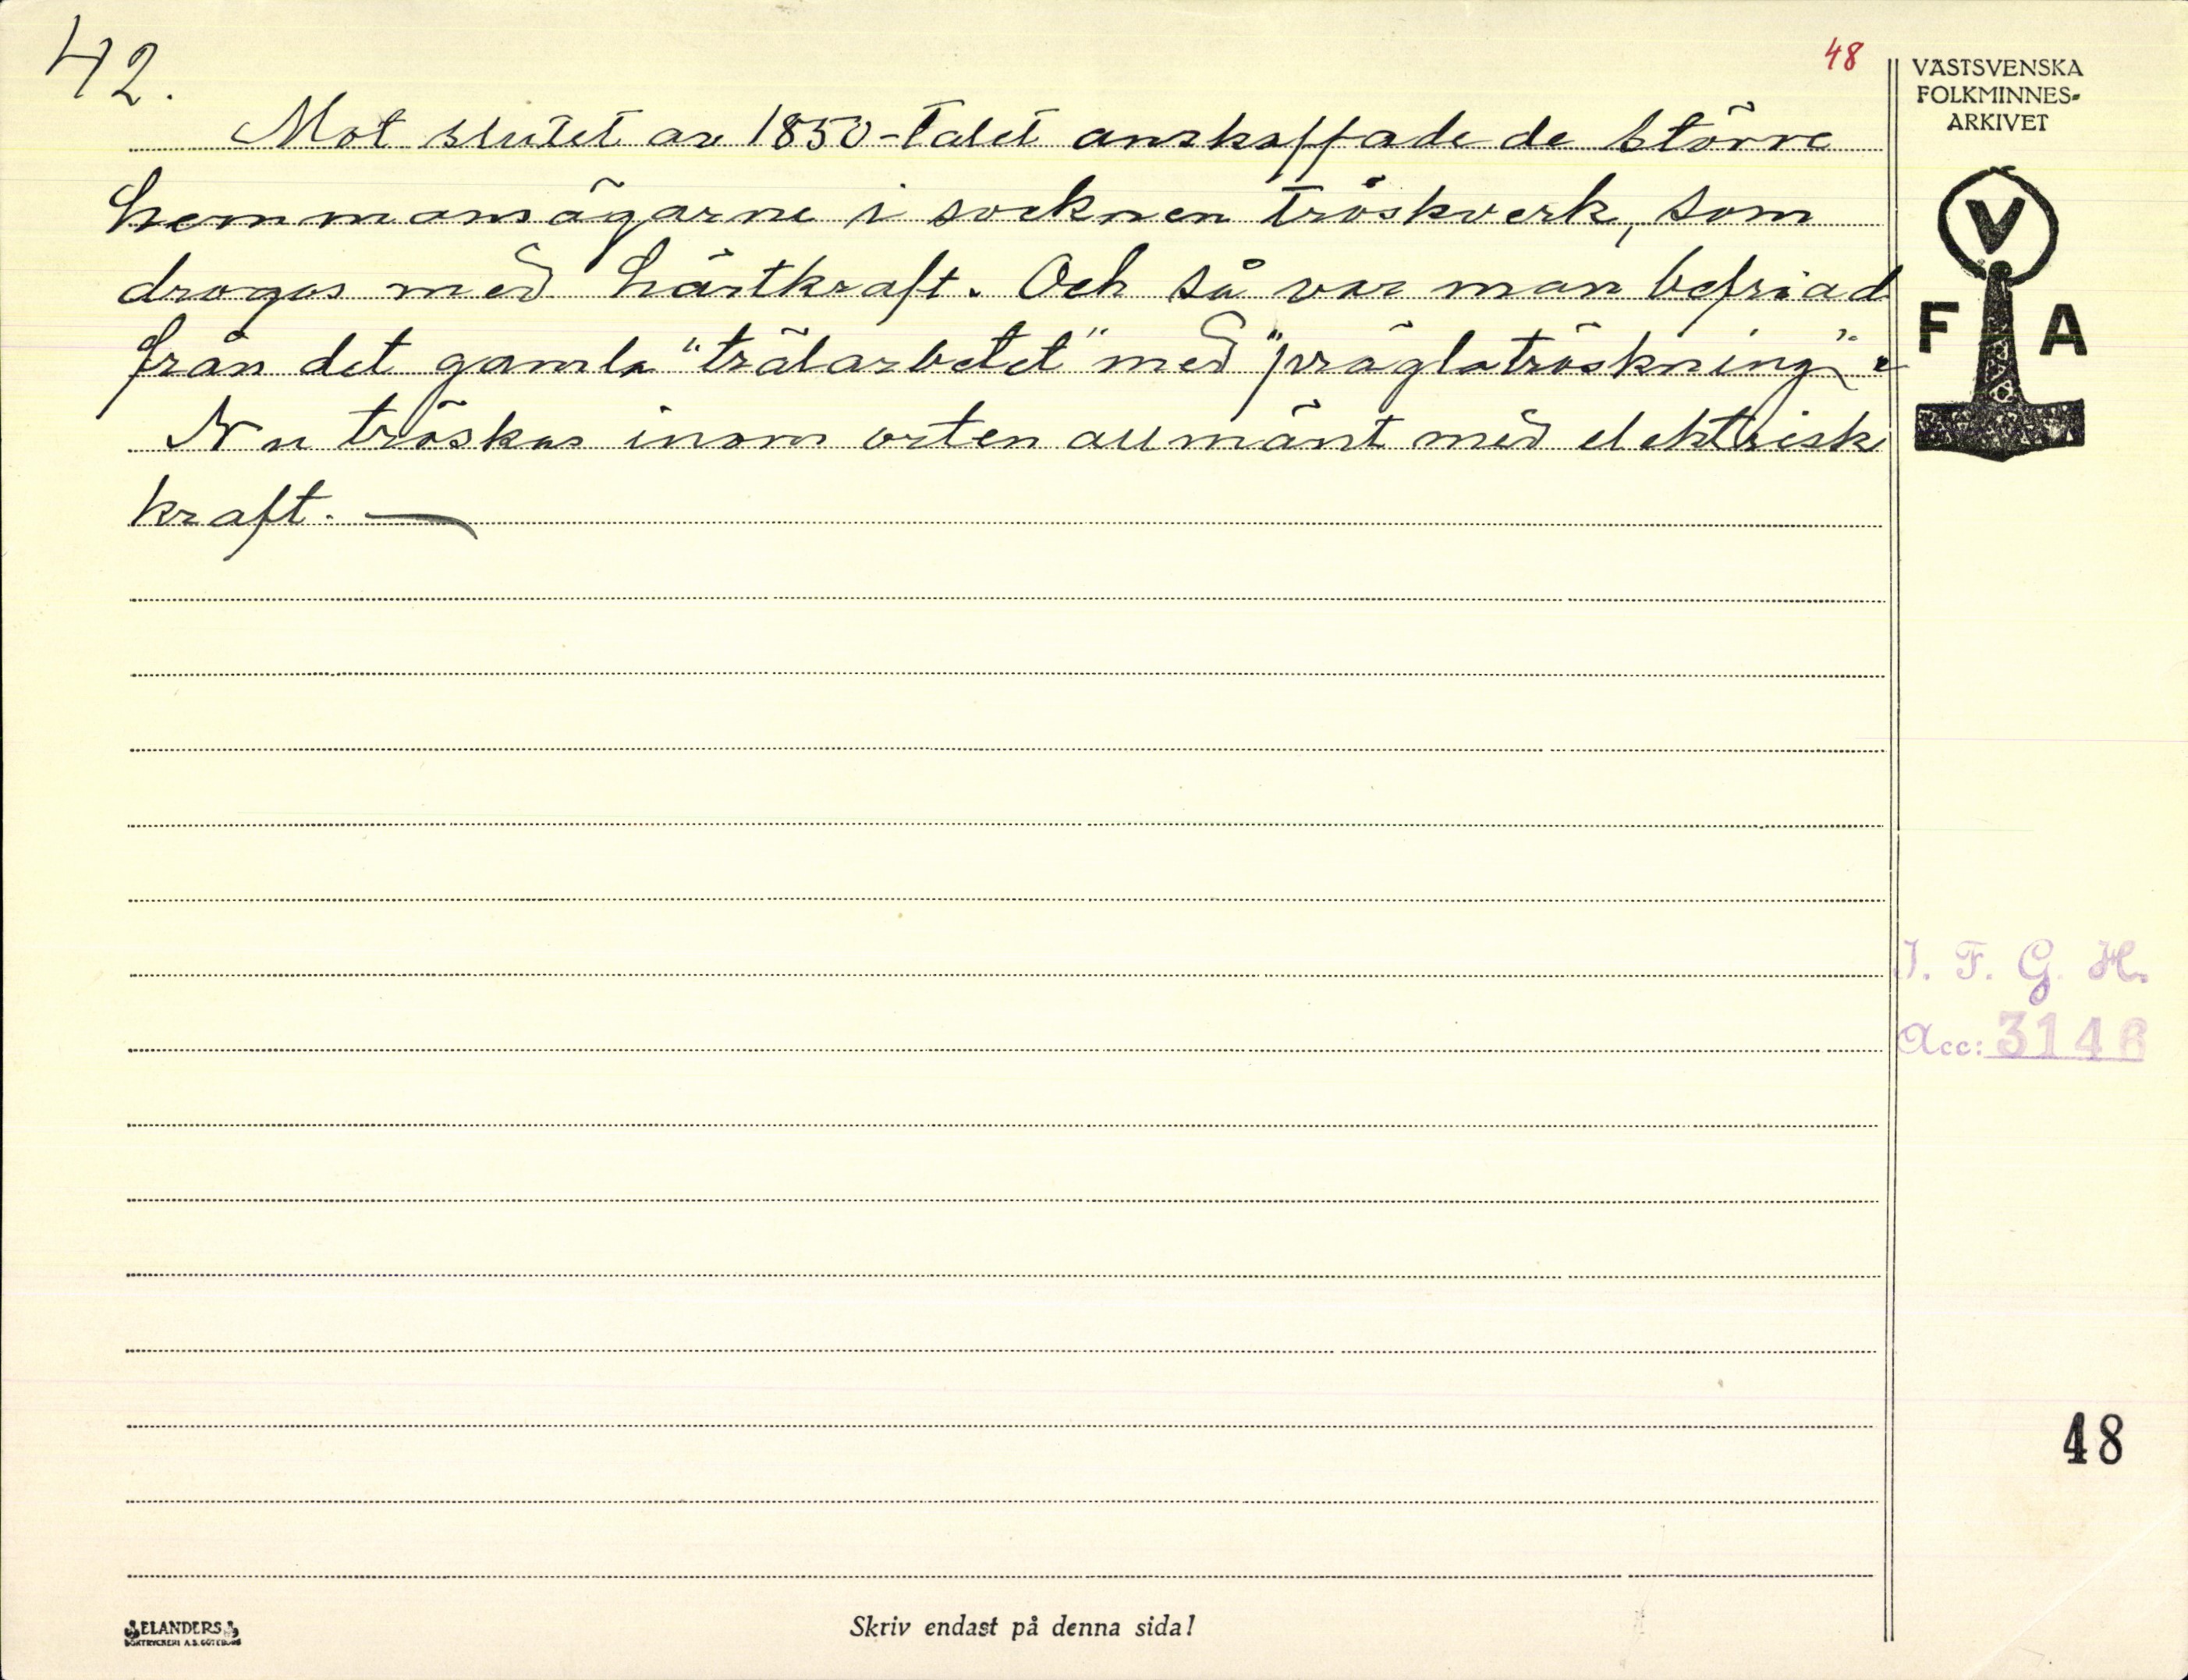 42.
48
VÄSTSVENSKA
FOLKMINNES-
ARKIVET
Mot slutet av 1850-talet anskaffade de större
hemmansägarne i socknen tröskverk, som
drogos med hästkraft. Och så var man befriad
från det gamla "trälarbetet" med "präglatröskning".
Nu tröskas inom orten allmänt med elektrisk
kraft. —
V
F A
I. F. G. H.
Acc: 3146
48
ELANDERS
BOKTRYCKERI A.B. GÖTEBORG
Skriv endast på denna sida!